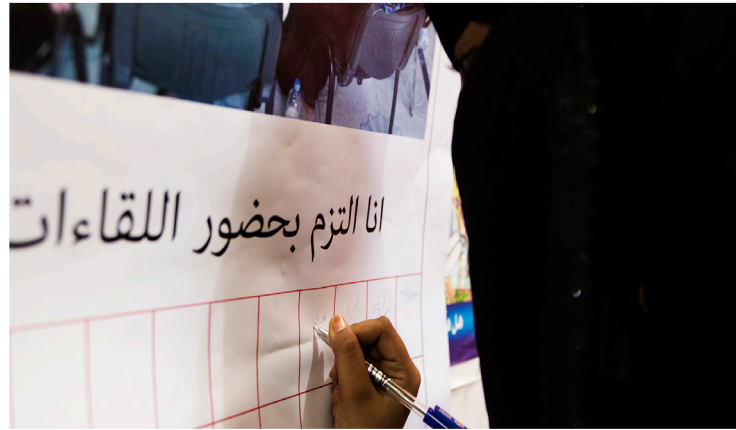 انا التزم بحضور اللقاءات